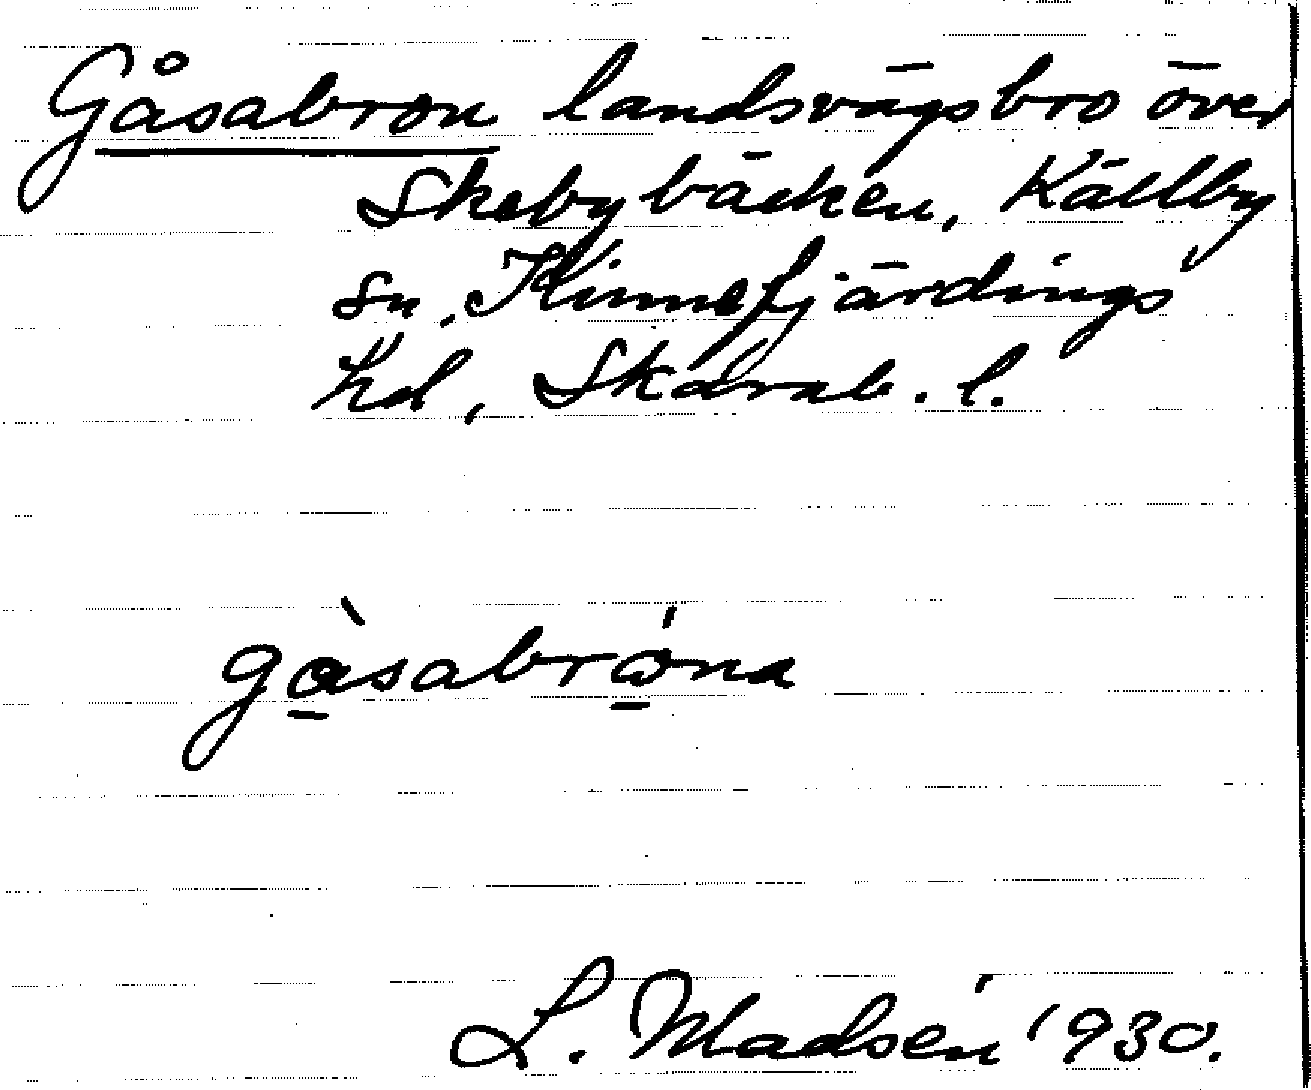 Gåsabron landsvägsbro över
Skebybäcken, Källby
sn, Kinnefjärdings
hd, Skarab. l.
gàsabrǿna
L. Madsén 1930.